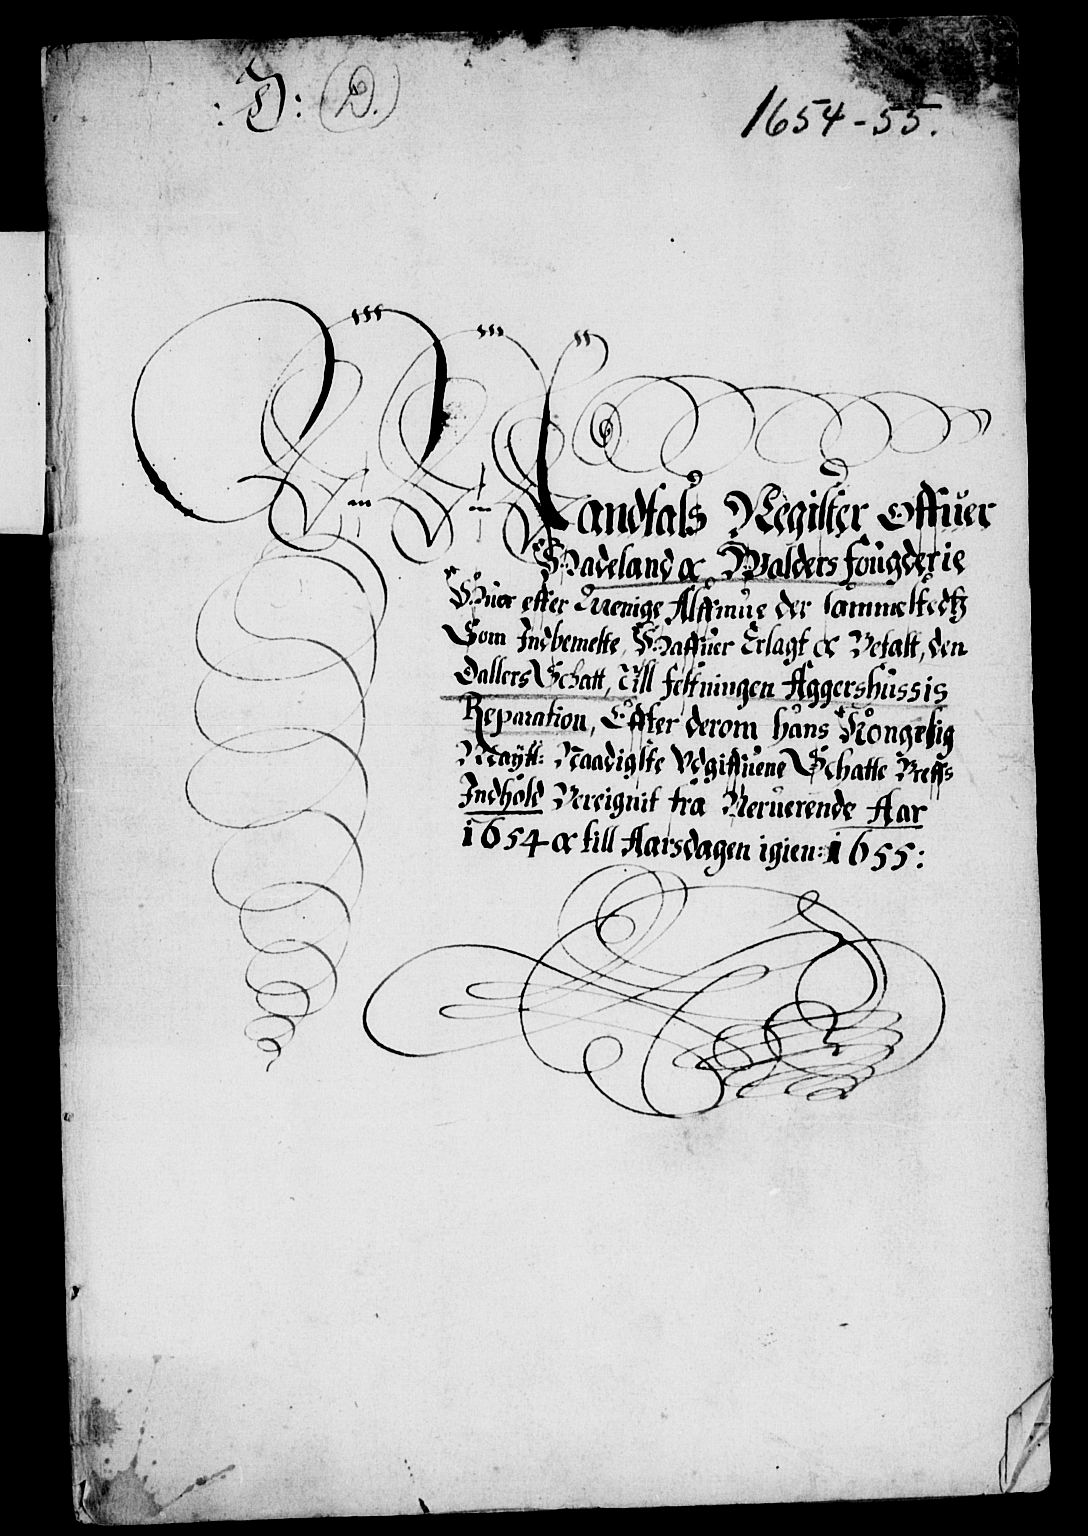 : D : (D.)
1654-55.
Mandtals Register Offuer
Hadeland & Walders fougderie
Huor effter Menige Allmue der sammelstedtz
Som Indbemelte, Haffuer Erlagt & Betalt, den
Dallers Schatt, Till festningen Aggershussis
Reparation, Effter derom hans Kongelig
Maytt: Naadigste Vdgiffuene Schatte Breffs
Indhold Bereignit fra Neruerende Aar
1654 & till Aarsdagen igien: 1655: